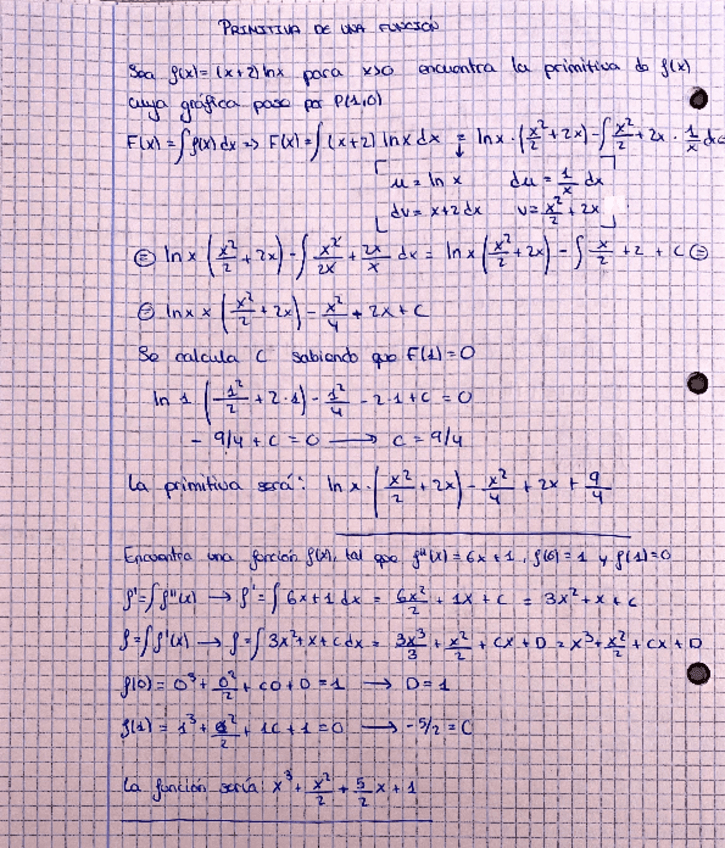 PRIMITIVA DE UNA FUNCIÓN
Sea f(x) = (x+2) ln x para x>0 encuentra la primitiva de f(x)
cuya gráfica pasa por P(1,0)
F(x) = ∫f(x) dx => F(x) = ∫(x+2) ln x dx = ln x · (x²/2 + 2x) - ∫ x²/2 + 2x · 1/x dx
u = ln x du = 1/x dx
dv = x+2 dx v = x²/2 + 2x
⊜ ln x (x²/2 + 2x) - ∫ x²/2x + 2x/x dx = ln x (x²/2 + 2x) - ∫ x/2 + 2 + C ⊜
⊜ ln x x (x²/2 + 2x) - x²/4 + 2x + C
Se calcula C sabiendo que F(1) = 0
ln 1 (1²/2 + 2·1) - 1²/4 - 2·1 + C = 0
- 9/4 + C = 0 → C = 9/4
La primitiva será: ln x · (x²/2 + 2x) - x²/4 + 2x + 9/4
Encuentra una función f(x), tal que f''(x) = 6x + 1, f(0) = 1 y f(1) = 0
f' = ∫f''(x) → f' = ∫ 6x + 1 dx = 6x²/2 + 1x + C = 3x² + x + C
f = ∫f'(x) → f = ∫ 3x² + x + C dx = 3x³/3 + x²/2 + Cx + D = x³ + x²/2 + Cx + D
f(0) = 0³ + 0²/2 + C0 + D = 1 → D = 1
f(1) = 1³ + 1²/2 + 1C + 1 = 0 → -5/2 = C
La función sería: x³ + x²/2 + 5/2 x + 1